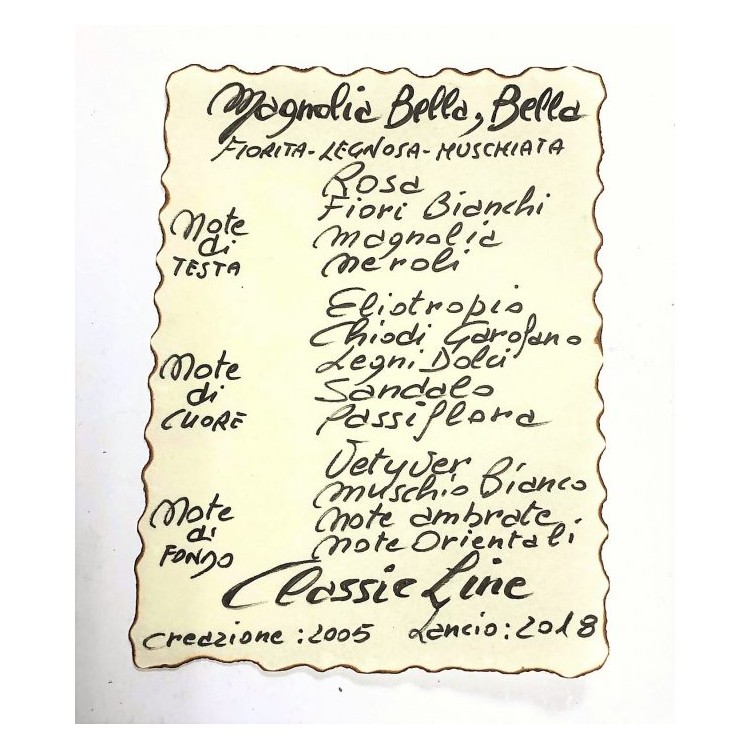 Magnolia Bella, Bella
FIORITA-LEGNOSA-MUSCHIATA
Note
di
TESTA
Rosa
Fiori Bianchi
Magnolia
Neroli
Note
di
CUORE
Eliotropio
Chiodi Garofano
Legni Dolci
Sandalo
Passiflora
Note
di
FONDO
Vetyver
Muschio Bianco
Note ambrate
Note Orientali
Classic Line
Creazione:2005 Lancio:2018